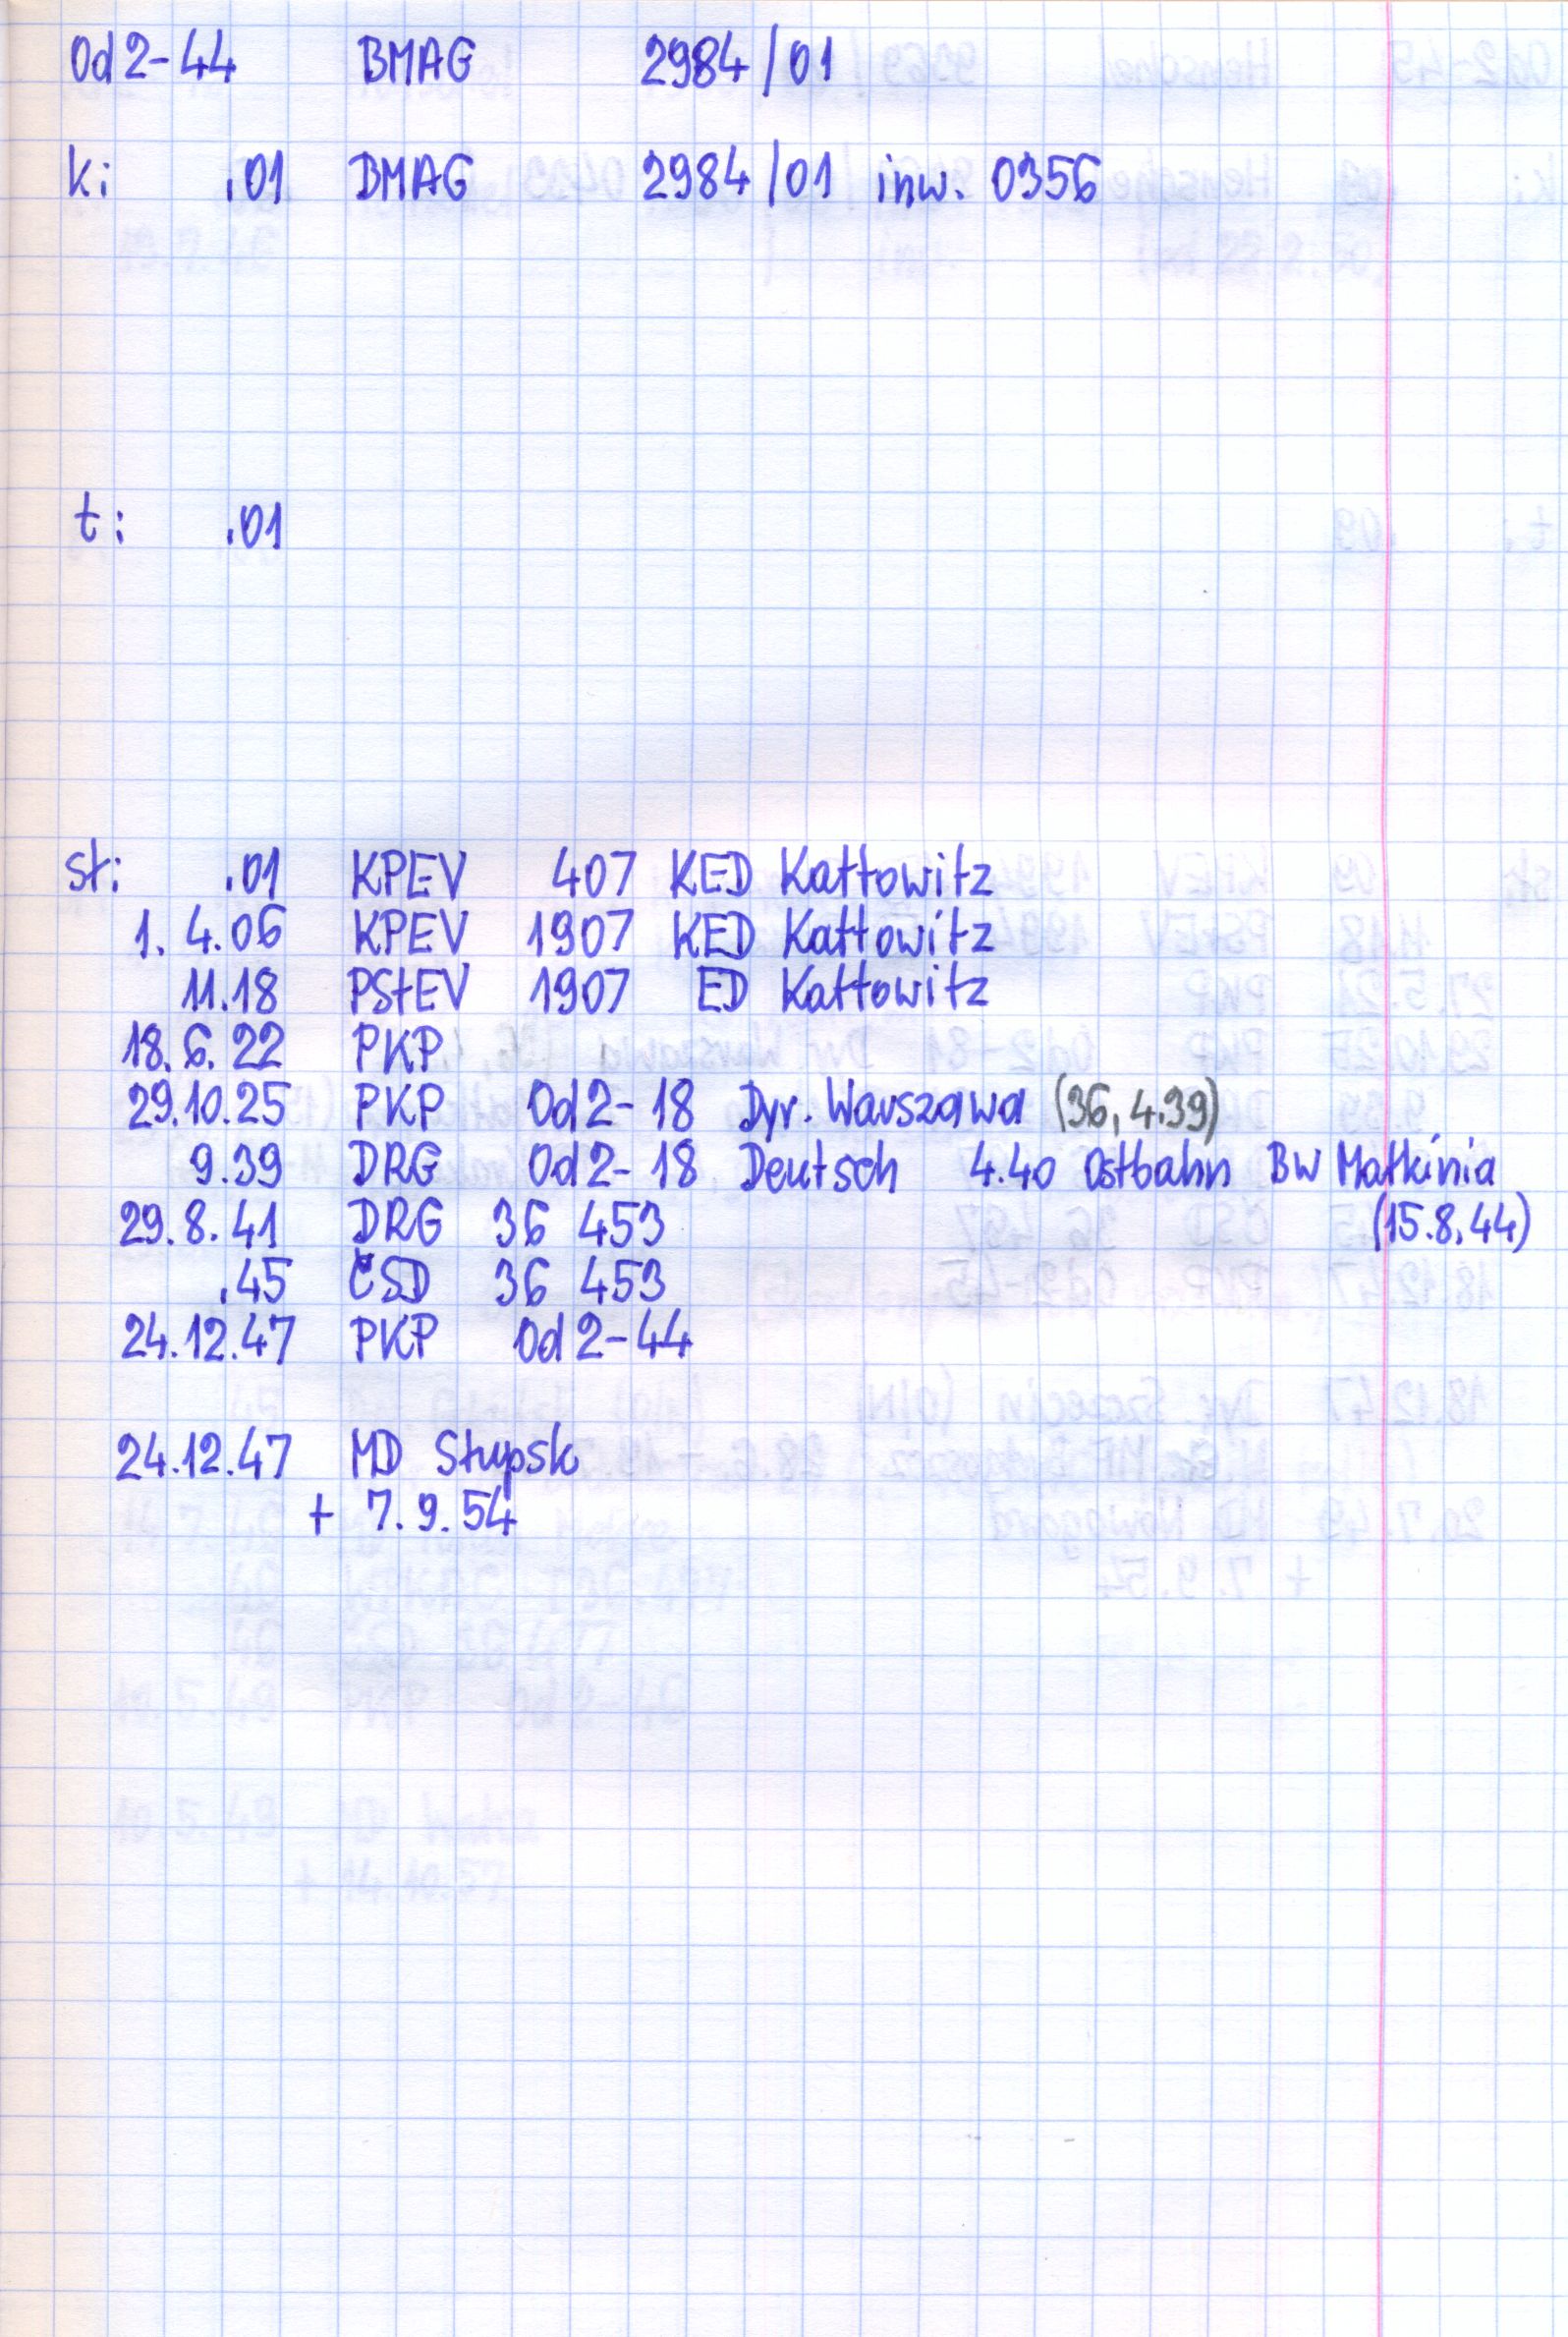 Od2-44 BMAG 2984/01
ki .01 BMAG 2984/01 inw. 0356
t: .01
st: .01 KPEV 407 KED Kattowitz
1.4.06 KPEV 1907 KED Kattowitz
11.18 PStEV 1907 ED Kattowitz
18.6.22 PKP
29.10.25 PKP Od2-18 Dyr. Warszawa (36, 4.39)
9.39 DRG Od2-18 Deutsch 4.40 Ostbahn BW Małkinia
29.8.41 DRG 36 453 (15.8.44)
.45 ČSD 36 453
24.12.47 PKP Od2-44
24.12.47 MD Słupsk
+ 7.9.54